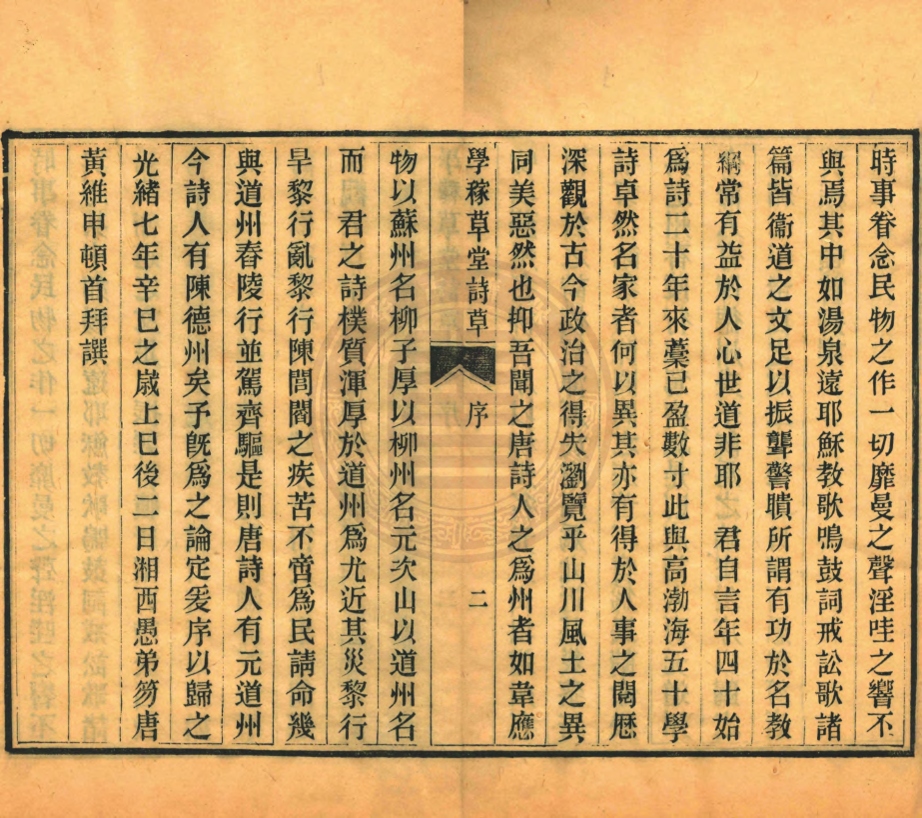 時事眷念民物之作一切靡曼之聲淫哇之響不
與焉其中如湯泉遠耶穌教歌鳴鼓詞戒訟歌諸
篇皆衞道之文足以振聾警聵所謂有功於名教
綱常有益於人心世道非耶 君自言年四十始
爲詩二十年來藳已盈數寸此與高渤海五十學
詩卓然名家者何以異其亦有得於人事之閱歴
深觀於古今政治之得失瀏覽乎山川風土之異
同美惡然也抑吾聞之唐詩人之爲州者如韋應
學稼草堂詩草 序 二
物以蘇州名柳子厚以柳州名元次山以道州名
而 君之詩樸質渾厚於道州爲尤近其災黎行
旱黎行亂黎行陳閭閻之疾苦不啻爲民請命幾
與道州舂陵行並駕齊驅是則唐詩人有元道州
今詩人有陳德州矣予旣爲之論定爰序以歸之
光緒七年辛巳之嵗上巳後二日湘西愚弟笏唐
黃維申頓首拜譔